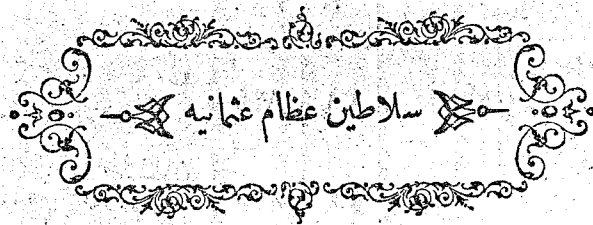 سلاطین عظام عثمانیه